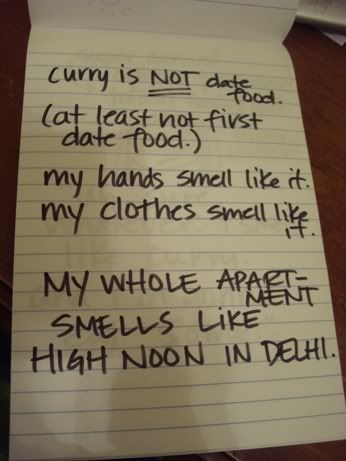 curry is NOT date
food.
(at least not first
date food.)
my hands smell like it.
my clothes smell like
it.
MY WHOLE APART-
MENT
SMELLS LIKE
HIGH NOON IN DELHI.